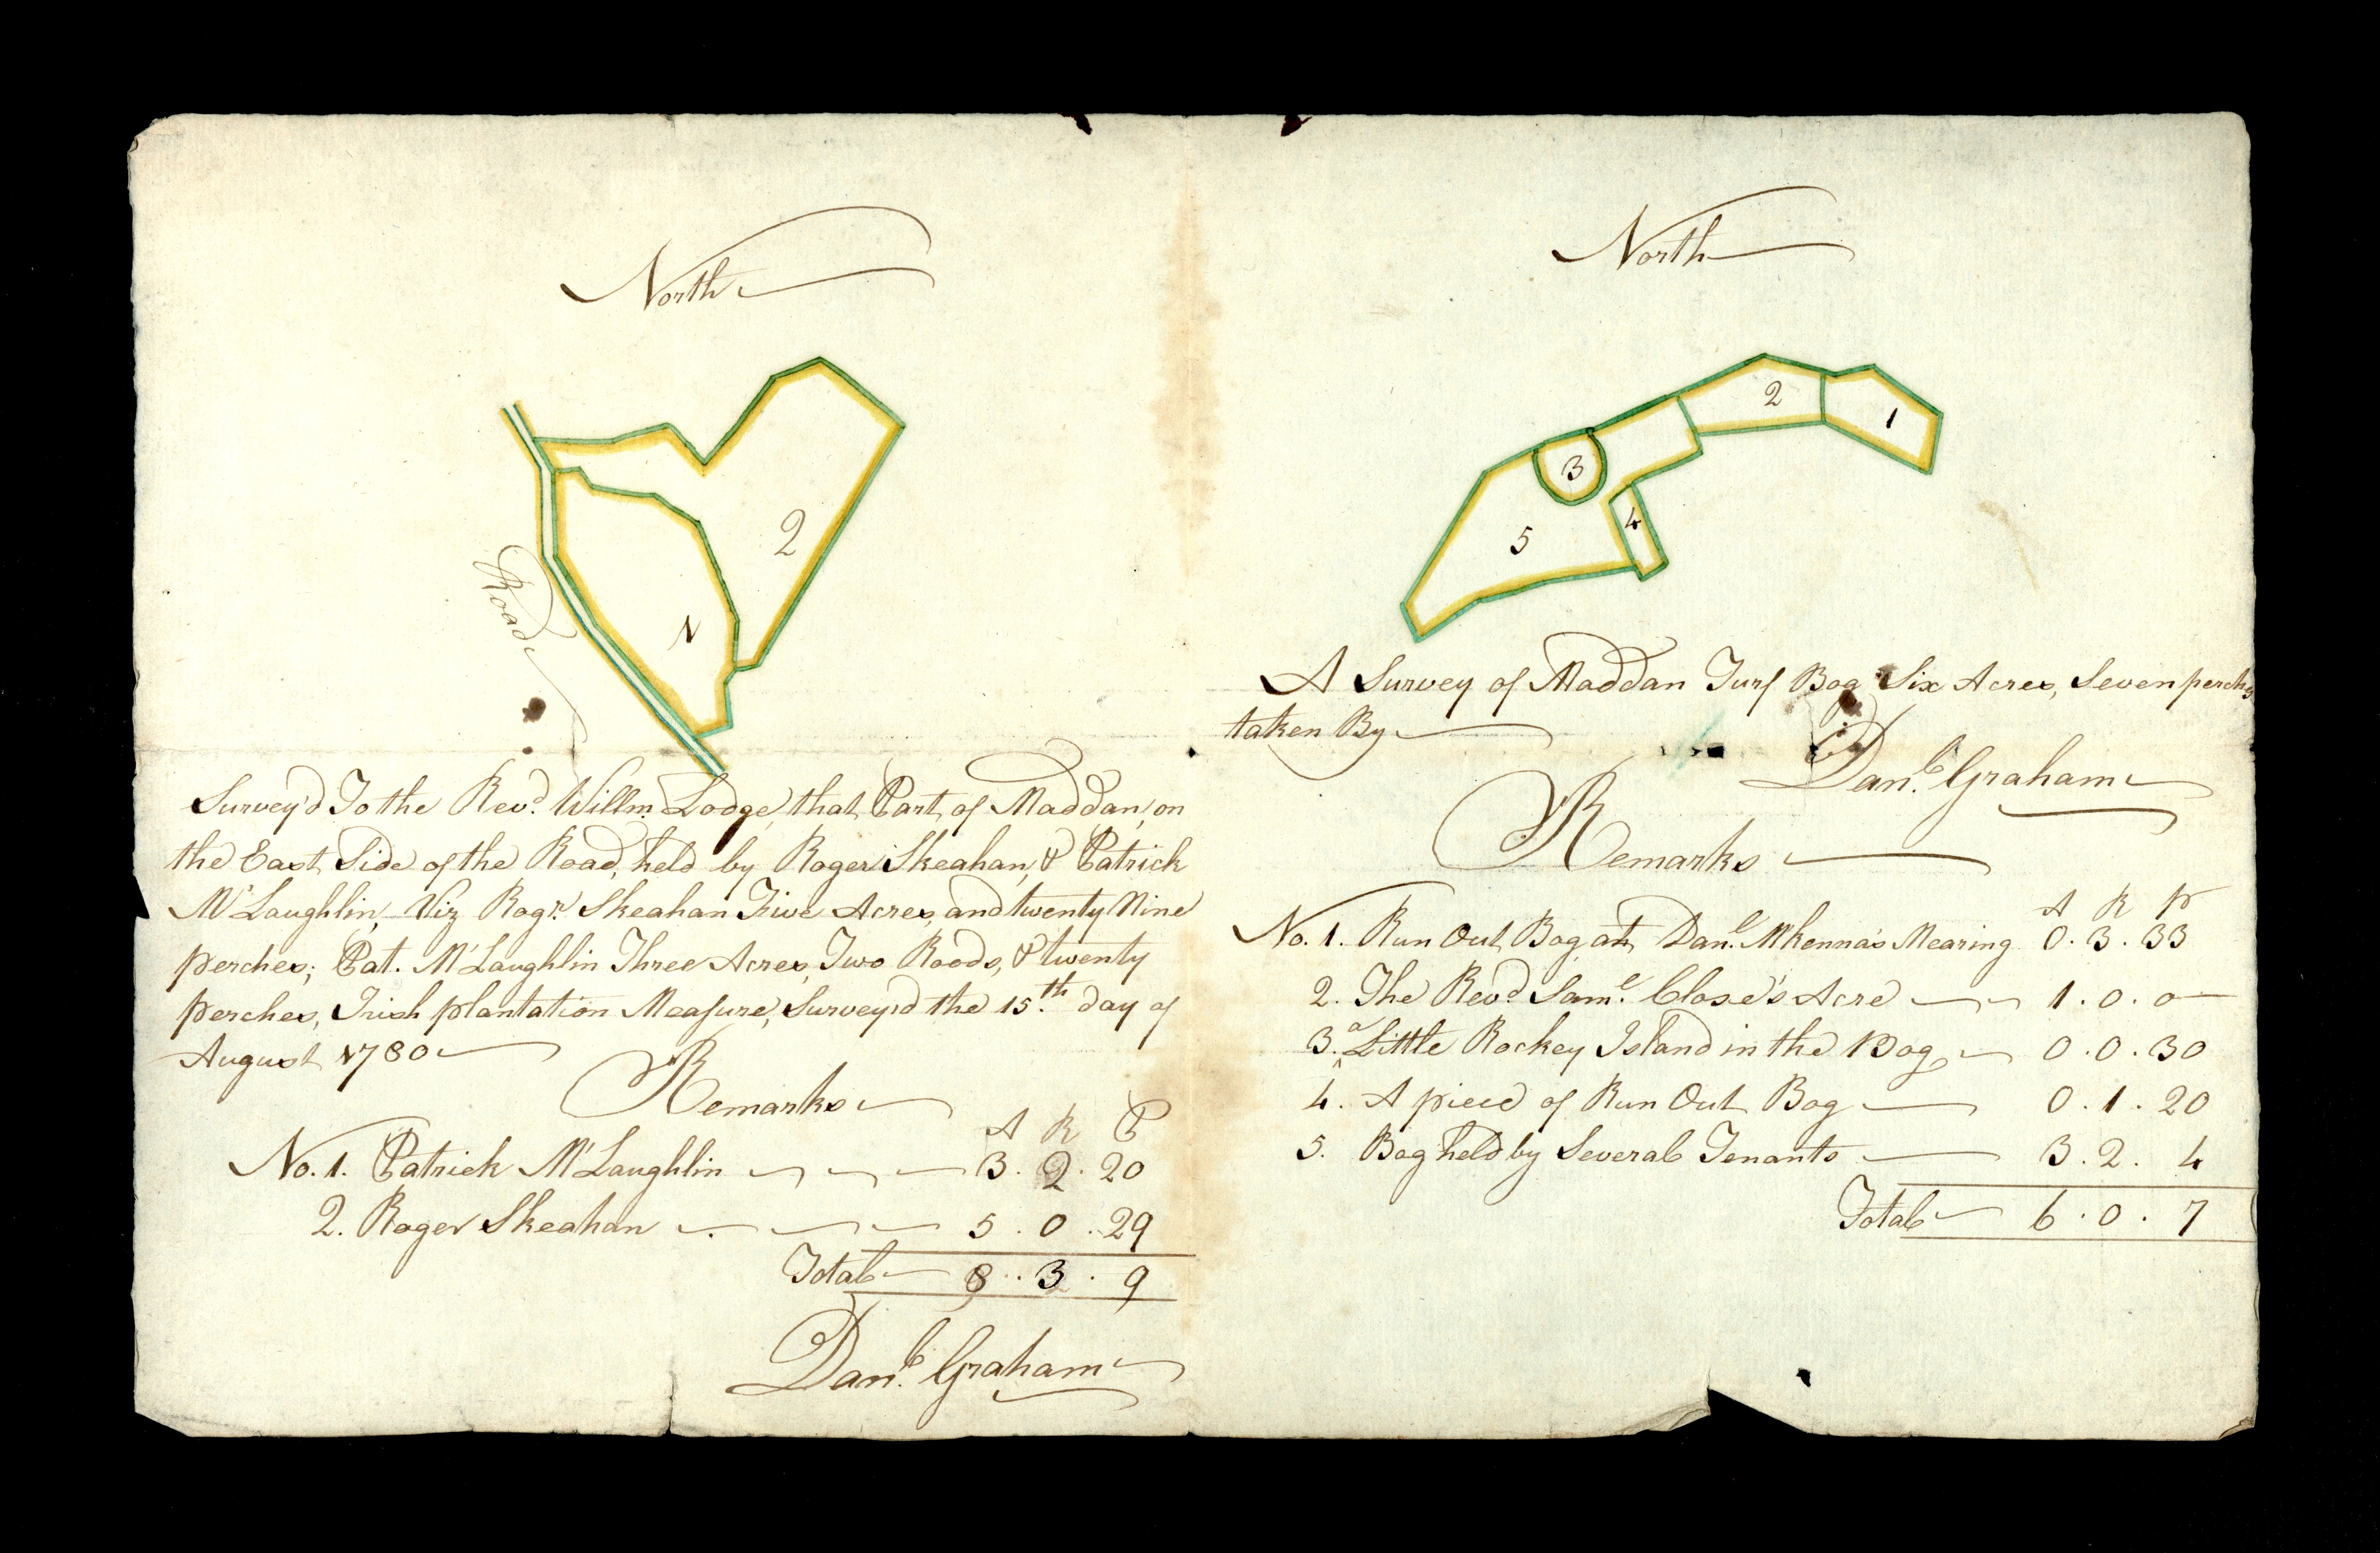 North
2
1
Road
Survey'd To the Revd. Willm. Lodge, that Part of Maddan, on
the East Side of the Road, held by Roger Skeahan, & Patrick
McLaughlin, Viz Rogr. Skeahan Five Acres, and twenty Nine
perches; Pat. McLaughlin Three Acres, Two Roods, & twenty
perches, Irish plantation Measure, Survey'd the 15th. day of
August 1780
Remarks
A R P
No. 1. Patrick McLaughlin 3. 2. 20
2. Roger Skeahan 5. 0. 29
Total 8. 3. 9
Danl. Graham
North
2
1
3
4
5
A Survey of Maddan Turf Bog Six Acres, Seven perchs
taken By
Danl. Graham
Remarks
A R P
No. 1. Run Out Bog at Danl. McKenna's Mearing 0. 3. 33
2. The Revd. Saml. Close's Acre 1. 0. 0
3. a Little Rockey Island in the Bog 0. 0. 30
4. A piece of Run Out Bog 0. 1. 20
5. Bog held by Several Tenants 3. 2. 4
Total 6. 0. 7